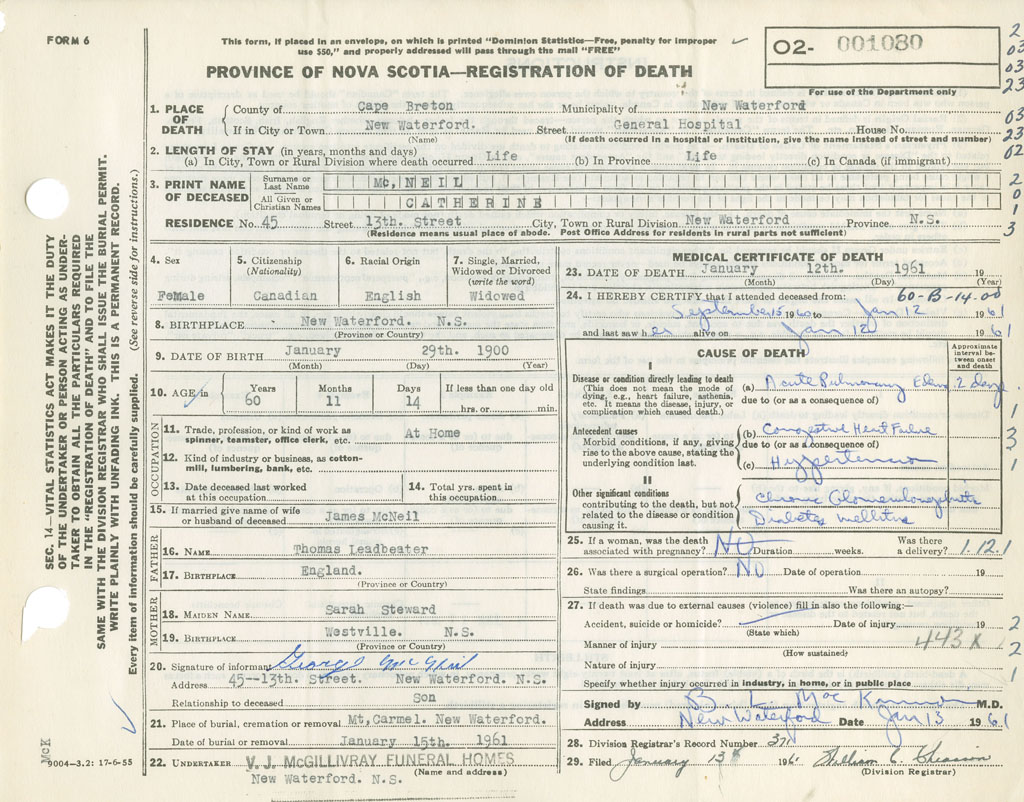 FORM 6
This form, if placed in an envelope, on which is printed "Dominion Statistics—Free, penalty for improper
use $50," and properly addressed will pass through the mail "FREE"
PROVINCE OF NOVA SCOTIA—REGISTRATION OF DEATH
O2- 001080
For use of the Department only
2
03
03
23
03
23
02
2
0
1
3
SEC. 14—VITAL STATISTICS ACT MAKES IT THE DUTY
OF THE UNDERTAKER OR PERSON ACTING AS UNDER-
TAKER TO OBTAIN ALL THE PARTICULARS REQUIRED
IN THE "REGISTRATION OF DEATH" AND TO FILE THE
SAME WITH THE DIVISION REGISTRAR WHO SHALL ISSUE THE BURIAL PERMIT.
WRITE PLAINLY WITH UNFADING INK. THIS IS A PERMANENT RECORD.
Every item of information should be carefully supplied. (See reverse side for instructions.)
1. PLACE OF DEATH
County of Cape Breton Municipality of New Waterford
If in City or Town New Waterford. Street General Hospital House No.
(Name) (If death occurred in a hospital or institution, give the name instead of street and number)
2. LENGTH OF STAY (in years, months and days)
(a) In City, Town or Rural Division where death occurred Life (b) In Province Life (c) In Canada (if immigrant)
3. PRINT NAME OF DECEASED
Surname or Last Name Mc,NEIL
All Given or Christian Names CATHERINE
RESIDENCE No. 45 Street 13th. Street City, Town or Rural Division New Waterford Province N.S.
(Residence means usual place of abode. Post Office Address for residents in rural parts not sufficient)
4. Sex Female
5. Citizenship (Nationality) Canadian
6. Racial Origin English
7. Single, Married, Widowed or Divorced (write the word) Widowed
8. BIRTHPLACE New Waterford. N.S.
(Province or Country)
9. DATE OF BIRTH January 29th. 1900
(Month) (Day) (Year)
10. AGE in Years 60 Months 11 Days 14 If less than one day old hrs. or min.
OCCUPATION
11. Trade, profession, or kind of work as
spinner, teamster, office clerk, etc. At Home
12. Kind of industry or business, as cotton-
mill, lumbering, bank, etc.
13. Date deceased last worked
at this occupation
14. Total yrs. spent in
this occupation
15. If married give name of wife
or husband of deceased James McNeil
FATHER
16. NAME Thomas Leadbeater
17. BIRTHPLACE England.
(Province or Country)
MOTHER
18. MAIDEN NAME Sarah Steward
19. BIRTHPLACE Westville. N.S.
(Province or Country)
20. Signature of informant George McNeil
Address 45--13th. Street. New Waterford. N.S.
Relationship to deceased Son
21. Place of burial, cremation or removal Mt,Carmel. New Waterford.
Date of burial or removal January 15th. 1961
22. UNDERTAKER V. J. McGILLIVRAY FUNERAL HOMES
(Name and address)
New Waterford. N.S.
McK
9004-3.2: 17-6-55
MEDICAL CERTIFICATE OF DEATH
23. DATE OF DEATH January 12th. 1961 19
(Month) (Day) (Year)
24. I HEREBY CERTIFY that I attended deceased from: 60-B-14-00
September 15 1960 to Jan 12 1961
and last saw her alive on Jan 12 1961
CAUSE OF DEATH
Approximate interval between onset and death
I
Disease or condition directly leading to death
(This does not mean the mode of
dying, e.g., heart failure, asthenia,
etc. It means the disease, injury, or
complication which caused death.)
(a) Acute Pulmonary Edema 2 days
due to (or as a consequence of)
Antecedent causes
Morbid conditions, if any, giving
rise to the above cause, stating the
underlying condition last.
(b) Congestive Heart Failure
due to (or as a consequence of)
(c) Hypertension
1
3
3
1
II
Other significant conditions
contributing to the death, but not
related to the disease or condition
causing it.
Chronic Glomerulonephritis
Diabetes mellitus
25. If a woman, was the death
associated with pregnancy? NO Duration weeks. Was there
a delivery? 1.12.1
26. Was there a surgical operation? NO Date of operation 19
State findings Was there an autopsy?
27. If death was due to external causes (violence) fill in also the following:—
Accident, suicide or homicide? Date of injury 19 2
(State which)
Manner of injury 443X 2
(How sustained)
Nature of injury 1
Specify whether injury occurred in industry, in home, or in public place
Signed by B. L. M.D.
Address New Waterford Date Jan 13 1961
28. Division Registrar's Record Number 37
29. Filed January 13 1961 William C. Chiasson
(Division Registrar)